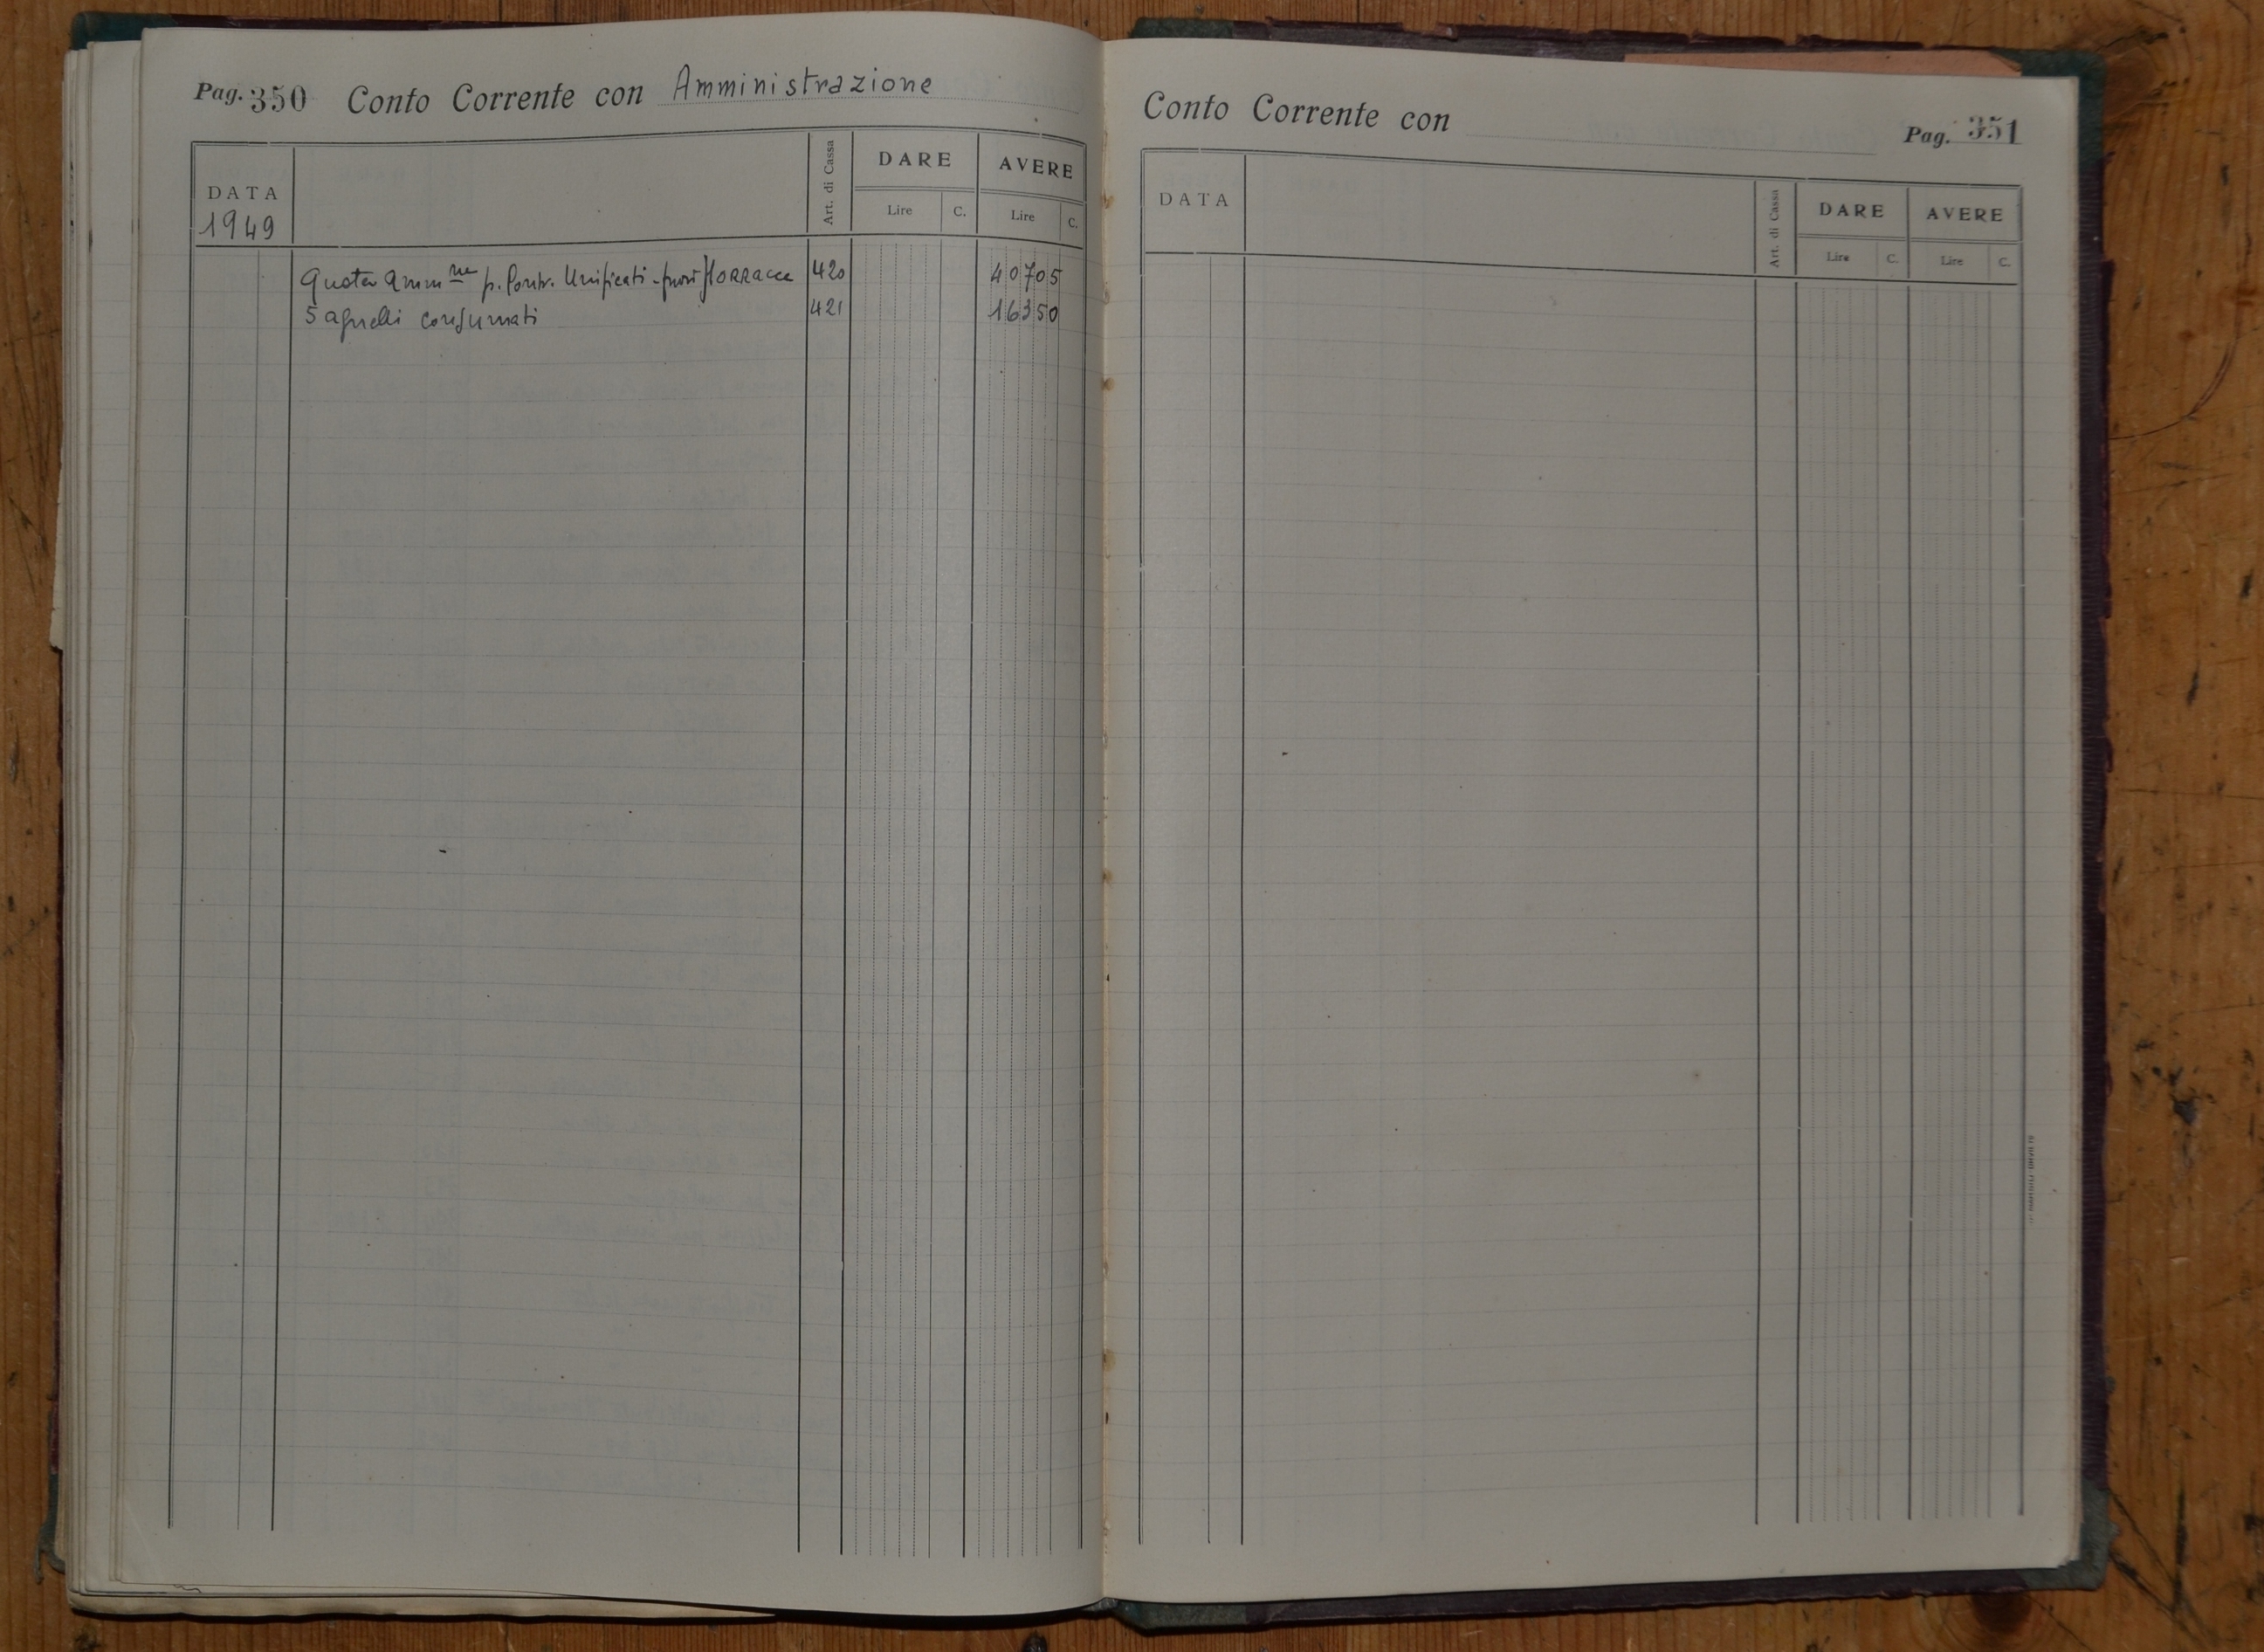 Pag. 350 Conto Corrente con Amministrazione
DATA Art. di Cassa DARE AVERE
1949 Lire C. Lire C.
Quota Amm.ne p. Contr. Unificati - 420 40705
5 agnelli consumati 421 16350
Conto Corrente con Pag. 351
DATA Art. di Cassa DARE AVERE
Lire C. Lire C.